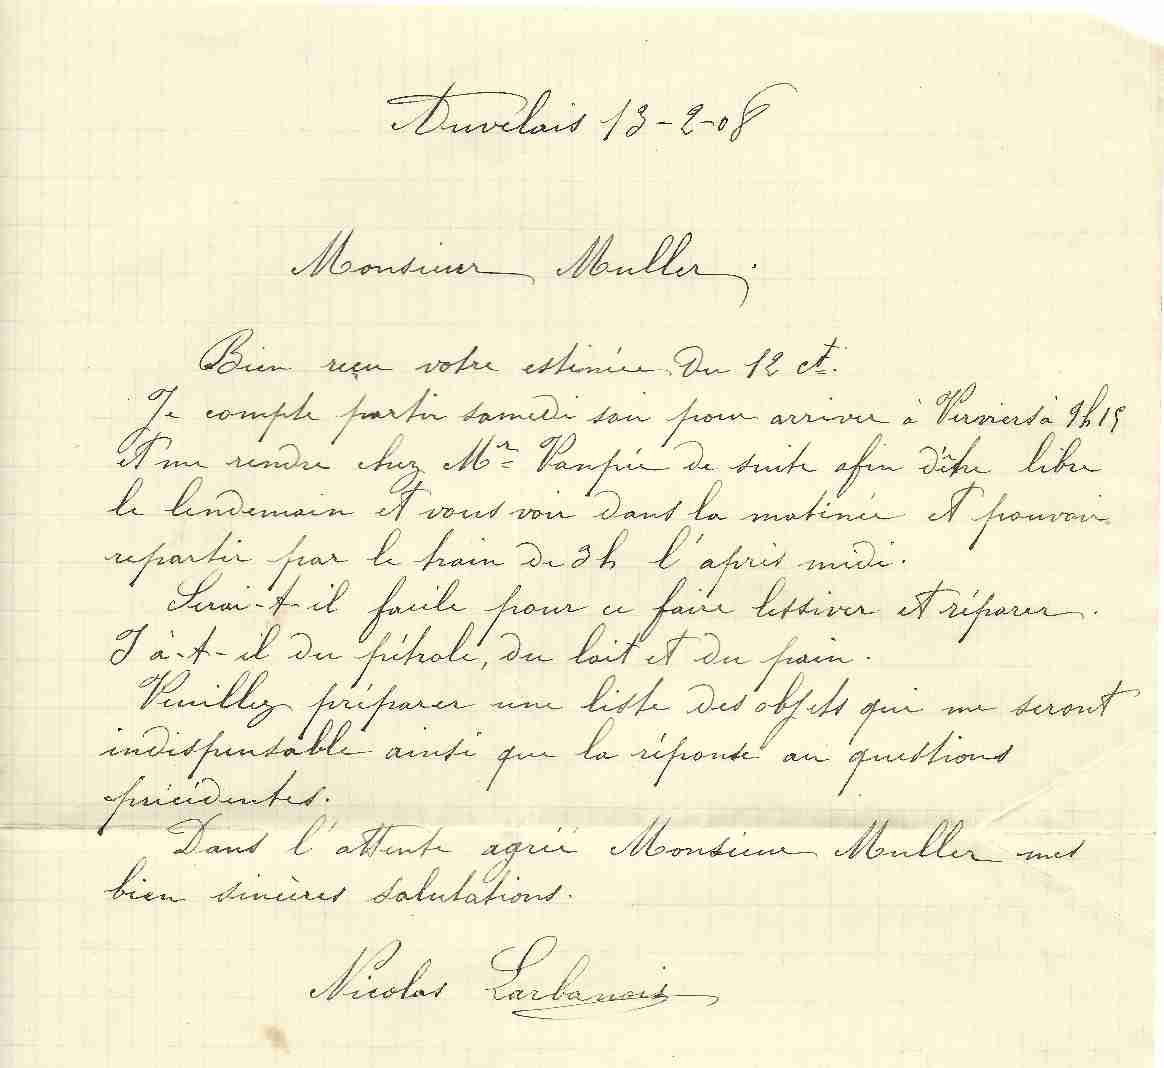 Auvelais 13-2-08
Monsieur Muller.
Bien reçu votre estimée du 12 ct.
Je compte partir samedi soir pour arriver à Verviers à 9h19
et me rendre chez Mr Vanpée de suite afin d'être libre
le lendemain et vous voir dans la matinée et pouvoir
repartir par le train de 3h l'après midi.
Serai-t-il facile pour ce faire lessiver et réparer.
I à-t-il du pétrole, du lait et du pain.
Veuillez préparer une liste des objets qui me seront
indispensable ainsi que la réponse au questions
précédentes.
Dans l'attente agréé Monsieur Muller mes
bien sincères salutations.
Nicolas Larbanois